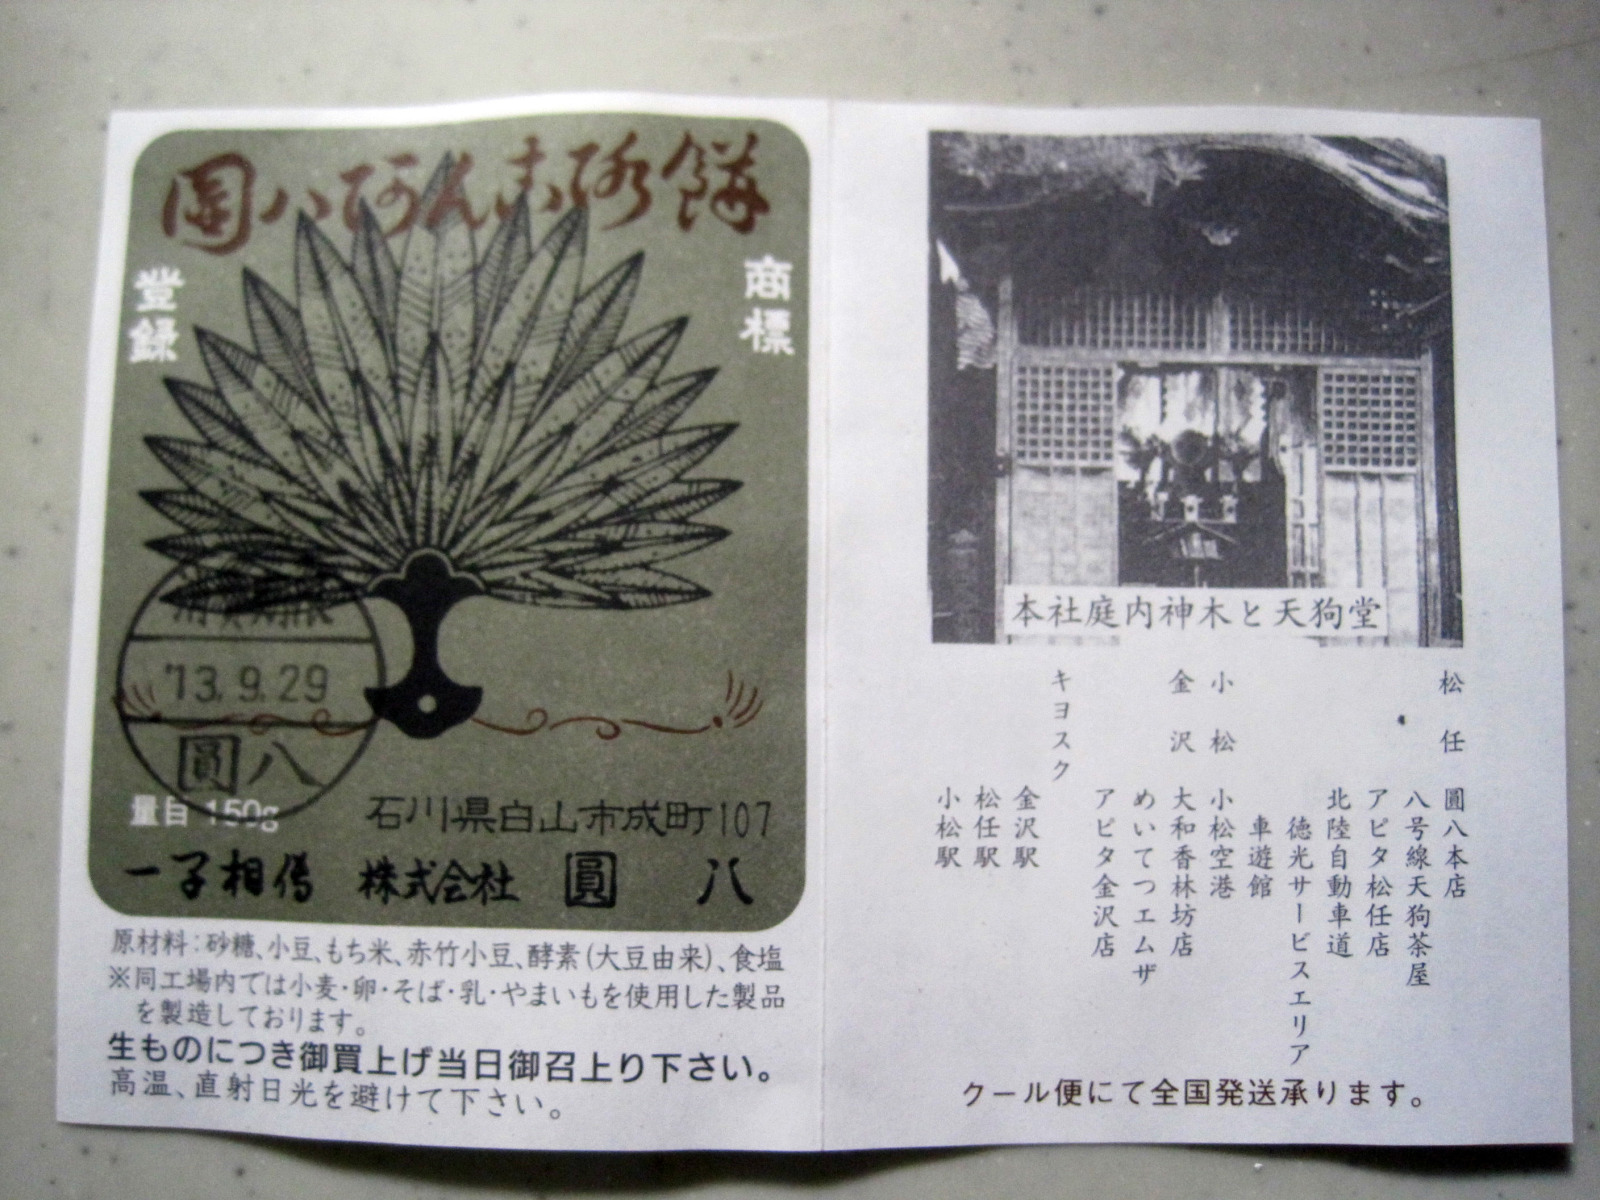 圓八あんころ餅
登録
商標
消費期限
'13.9.29
圓八
量目 150g
石川県白山市成町107
一子相傳 株式会社 圓八
原材料：砂糖、小豆、もち米、赤竹小豆、酵素(大豆由来)、食塩
※同工場内では小麦・卵・そば・乳・やまいもを使用した製品
を製造しております。
生ものにつき御買上げ当日御召上り下さい。
高温、直射日光を避けて下さい。
本社庭内神木と天狗堂
松任 圓八本店
八号線天狗茶屋
アピタ松任店
北陸自動車道
徳光サービスエリア
車遊館
小松 小松空港
金沢 大和香林坊店
めいてつエムザ
アピタ金沢店
キヨスク
金沢駅
松任駅
小松駅
クール便にて全国発送承ります。